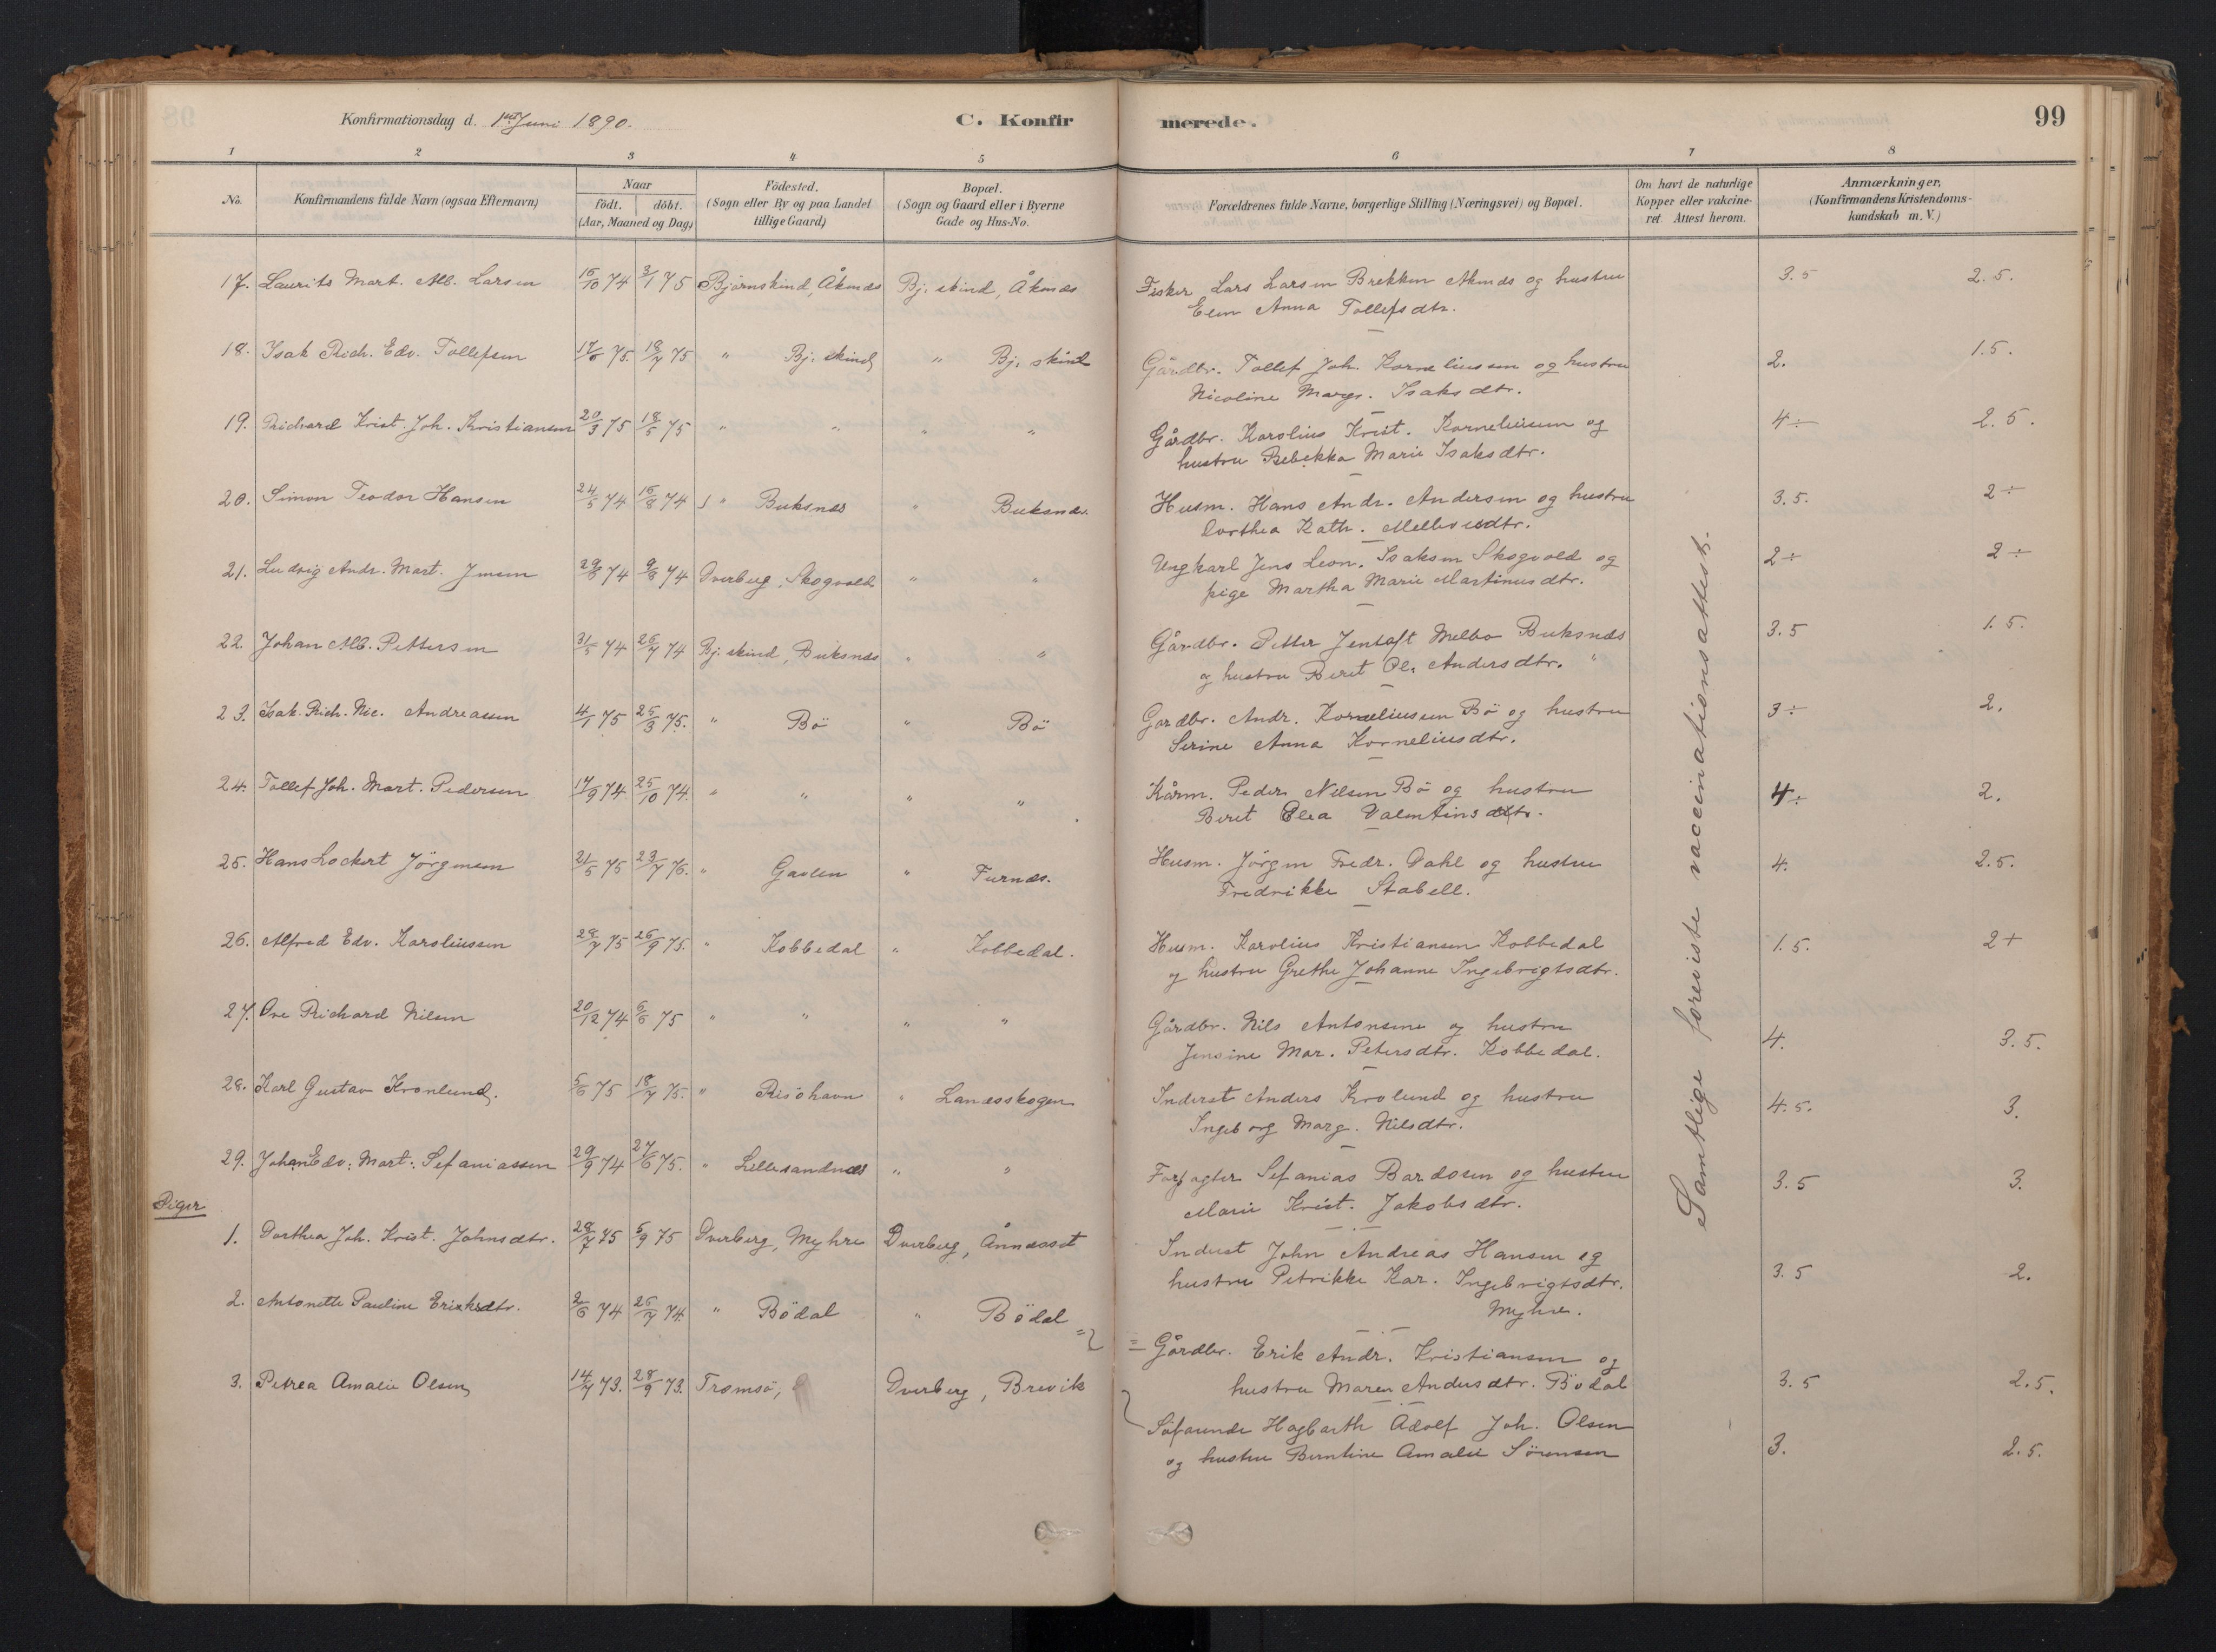 Konfirmationsdag d. 1ste Juni 1890. C. Konfirmerede. 99
1 2 3 4 5 6 7 8
No. Konfirmandens fulde Navn (ogsaa Efternavn) Naar födt. döbt. (Aar, Maaned og Dag) Födested. (Sogn eller By og paa Landet tillige Gaard) Bopæl. (Sogn og Gaard eller i Byerne Gade og Hus-No. Forældrenes fulde Navne, borgerlige Stilling (Næringsvei) og Bopæl. Om havt de naturlige Kopper eller vakcineret. Attest herom. Anmærkninger. (Konfirmandens Kristendomskundskab m. V.)
17. Laurits Mart. Alb. Larsen 16/10 74 3/1 75 Bjørnskind, Åknæs Bj. skind, Åknæs Fisker Lars Larsen Brekken Aknæs og hustru 3.5 2.5.
Elen Anna Tollefsdtr.
18. Isak Rich. Edv. Tollefsen 17/6 75. 18/7 75 " Bj. skind " Bj. skind Gårdbr. Tollef Joh. Korneliussen og hustru 2. 1.5.
Nicoline Margr. Isaksdtr.
19. Richard Krist. Joh. Kristiansen 20/3 75 18/5 75 " " " " Gårdbr. Karolius Krist. Korneliussen og 4÷ 2.5.
hustru Rebekka Marie Isaksdtr.
20. Simon Teodor Hansen 24/5 74 16/8 74 " Buksnæs " Buksnæs. Husm. Hans Andr. Andersen og hustru 3.5. 2÷
Dorthea Kath. Mellevsdtr.
21. Ludvig Andr. Mart. Jensen 29/6 74 9/8 74 Dverberg, Skogvold " " Ungkarl Jens Leon. Isaksen Skogvold og 2÷ 2÷
pige Martha Marie Martinusdtr.
22. Johan Alb. Pettersen 31/5 74 26/7 74 Bj. skind, Buksnæs " " Gårdbr. Petter Jentoft Melbo Buksnæs 3.5 1.5.
og hustru Beret Ol. Andersdtr. "
23. Isak Rich. Nic. Andreassen 4/1 75 25/3 75. " Bö " Bö Gardbr. Andr. Korneliussen Bö og hustru 3÷ 2.
Serine Anna Korneliusdtr.
24. Tollef Joh. Mart. Pedersen 17/9 74 25/10 74. " " " " Kårm. Peder Nilsen Bö og hustru 4÷ 2.
Beret Elea Valentinsdtr.
25. Hans Lockert Jörgensen 21/5 75 23/7 75. " Gavlen " Furnæs. Husm. Jörgen Fredr. Dahl og hustru 4. 2.5.
Fredrikke Stabell.
26. Alfred Edv. Karoliussen 28/7 75 26/9 75. " Kobbedal " Kobbedal. Husm. Karolius Kristiansen Kobbedal 1.5. 2+
og hustru Grethe Johanne Ingebrigtsdtr.
27. Ove Richard Nilsen 20/12 74 6/6 75 " " " " Gårdbr. Nils Antonsen og hustru 4. 3.5.
Jensine Mar. Petersdtr. Kobbedal.
28. Karl Gustav Kronlund. 5/6 75 18/7 75. " Risöhavn " Landsskogen Inderst Anders Krolund og hustru 4.5. 3.
Ingeborg Marg. Nilsdtr.
29. Johan Edv. Mart. Sefaniassen 29/9 74 27/6 75. " Lillesandnæs " " Forpagter Sefanias Bardosen og hustru 3.5 3.
Marie Krist. Jakobsdtr.
Piger
1. Dorthea Joh. Krist. Johnsdtr. 28/7 75 5/9 75 Dverberg, Myhre Dverberg, Ånnæsset Inderst John Andreas Hansen og 3.5 2.
hustru Petrikke Kar. Ingebrigtsdtr.
Myhre.
2. Antonette Pauline Eriksdtr. 2/6 74 26/7 74. " Bödal " Bödal = Gårdbr. Erik Andr. Kristiansen og 3.5 2.5.
hustru Maren Andersdtr. Bödal
3. Petrea Amalie Olsen 14/7 73. 28/9 73. Tromsö, Dverberg, Brevik Söfarende Hagbarth Adolf Joh. Olsen 3. 2.5.
og hustru Berntine Amalie Sörensen
Samtlige foreviste vaccinationsattest.